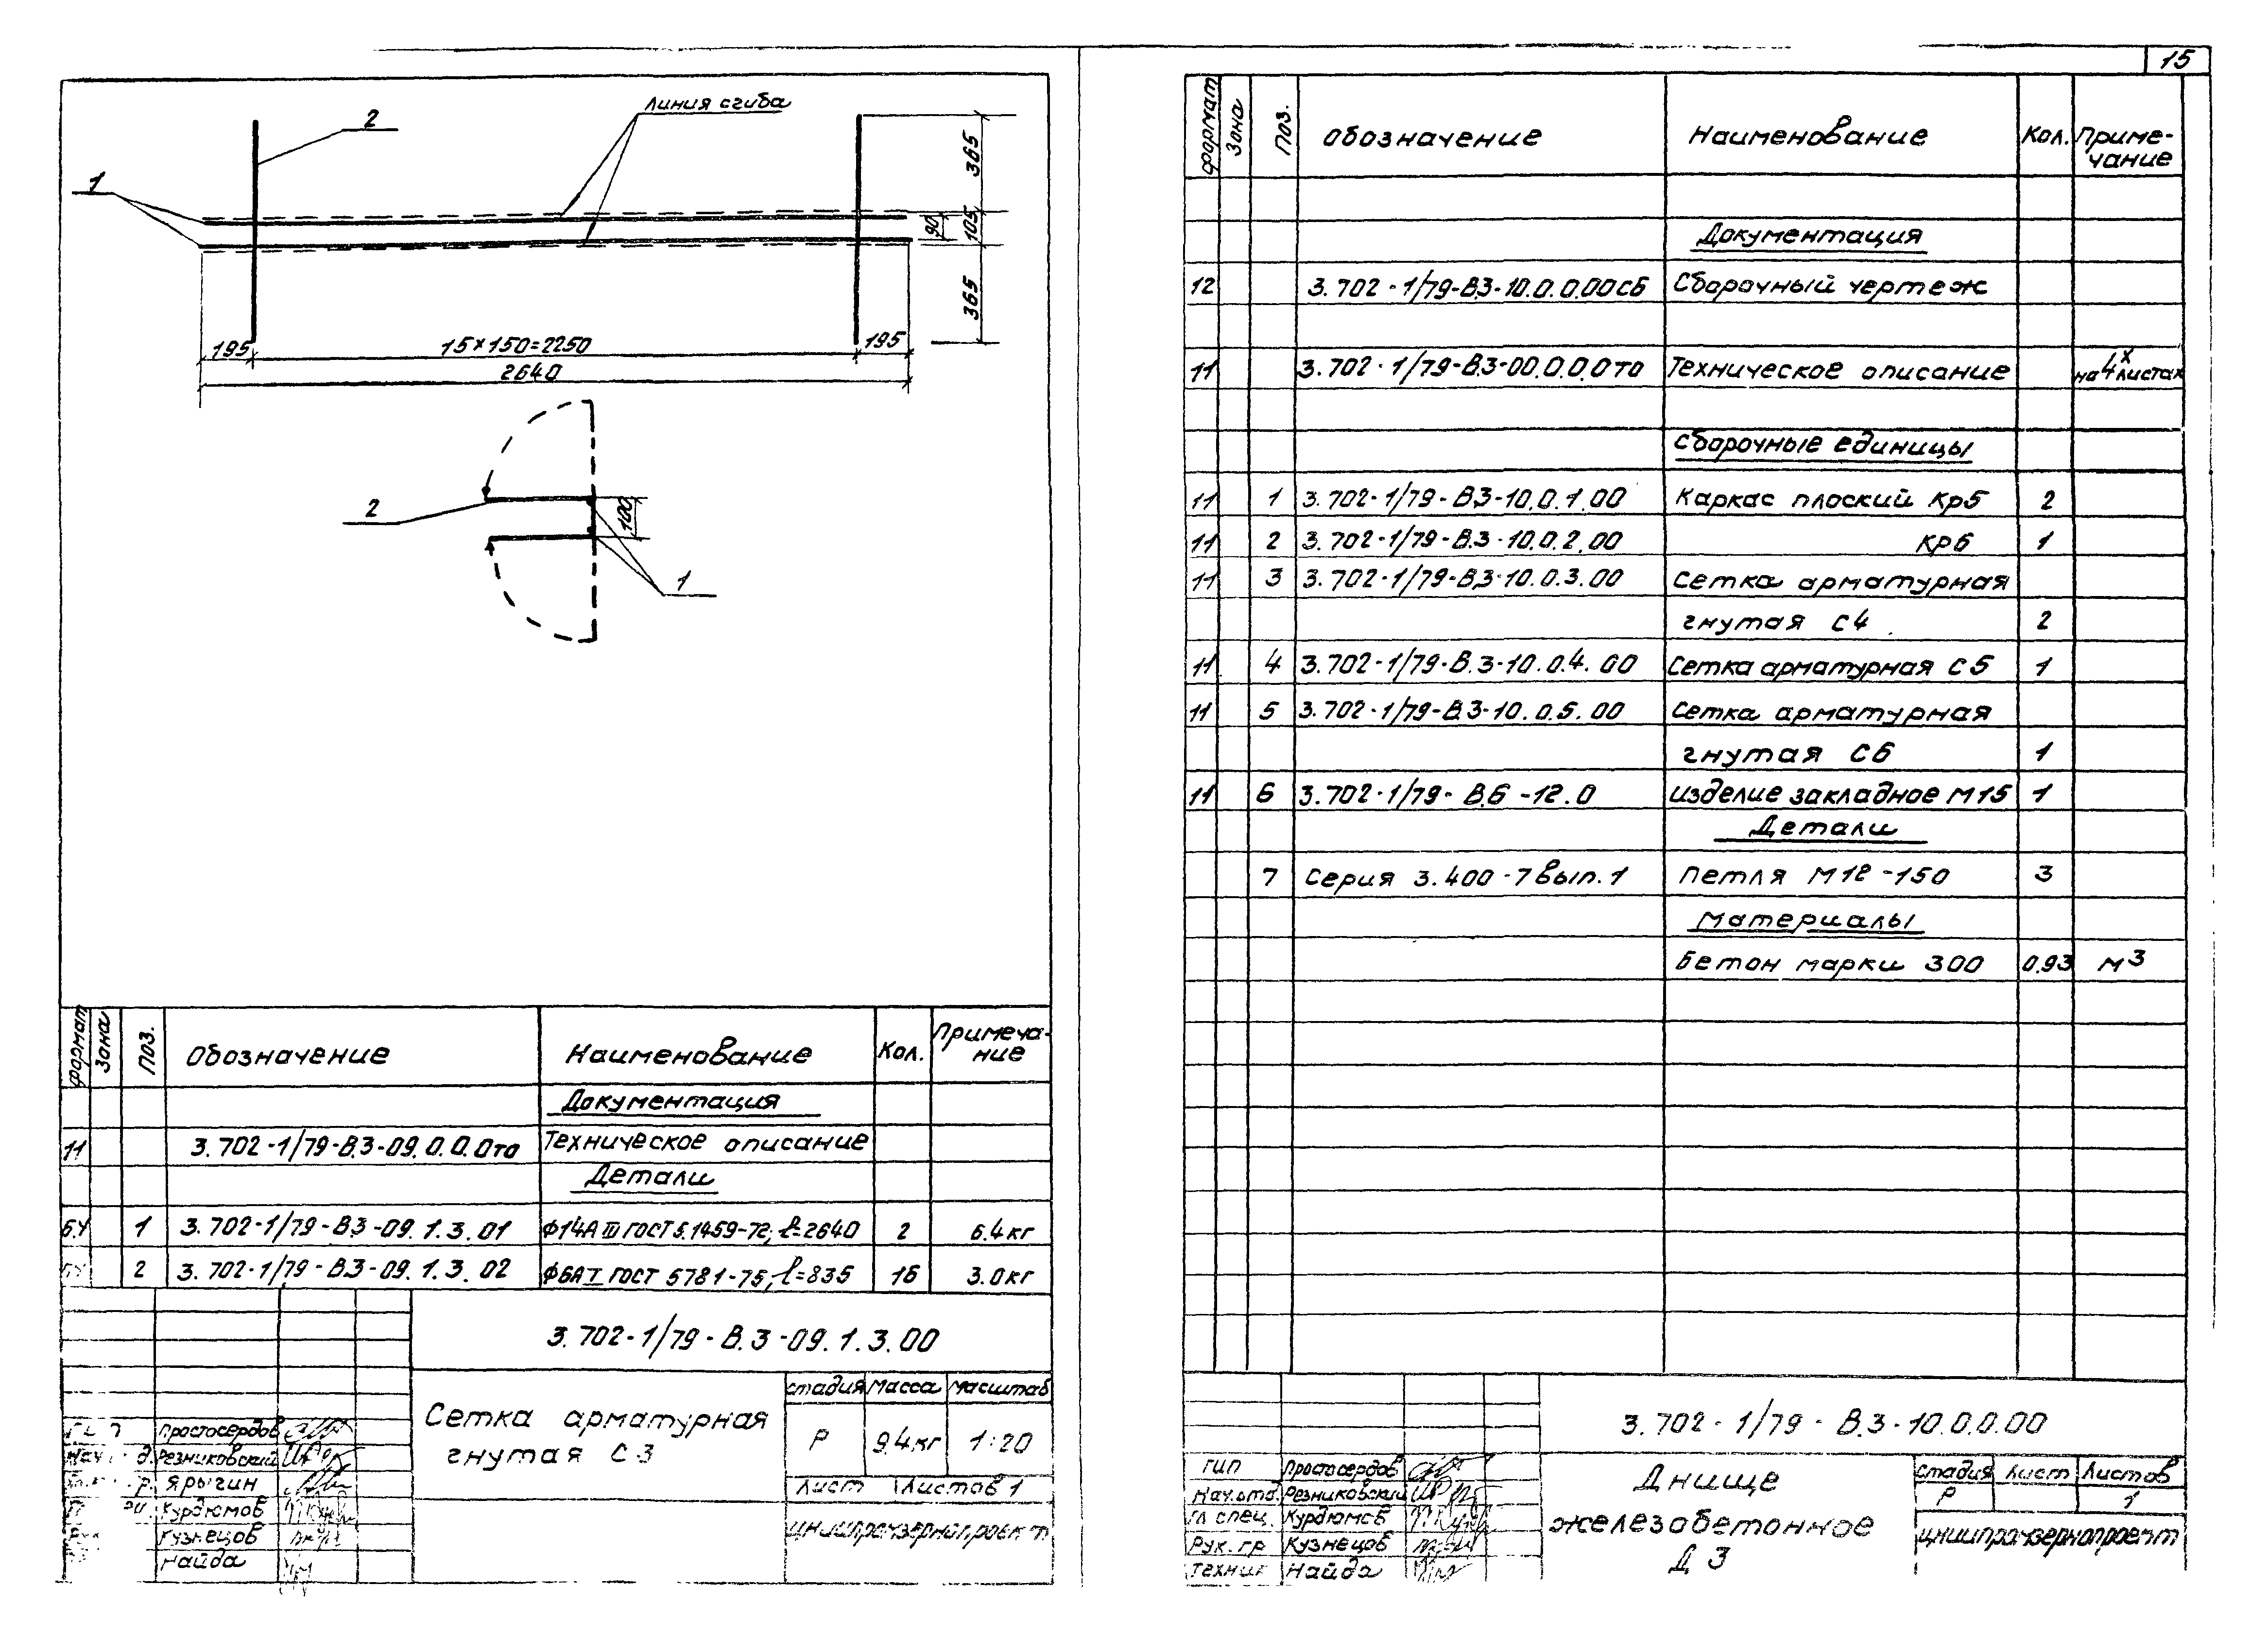 15
линия сгиба
2
1
365
105
90
365
195
15×150=2250
195
2640
2
100
1
формат
Зона
Поз.
Обозначение
Наименование
Кол.
Примеча-
ние
Документация
11 3.702-1/79-В.3-09.0.0.0то Техническое описание
Детали
БЧ 1 3.702-1/79-В.3-09.1.3.01 Ф14АIII ГОСТ 5.1459-72, ℓ=2640 2 6.4кг
БЧ 2 3.702-1/79-В.3-09.1.3.02 Ф6АI ГОСТ 5781-75, ℓ=835 16 3.0кг
3.702-1/79-В.3-09.1.3.00
Сетка арматурная
гнутая С3
стадия масса масштаб
Р 9.4кг 1:20
Лист Листов 1
Простосердов
Резниковский
Ярыгин
Курдюмов
Кузнецов
Найда
цниипромзернопроект
формат
Зона
Поз.
Обозначение
Наименование
Кол.
Приме-
чание
Документация
12 3.702-1/79-В.3-10.0.0.00СБ Сборочный чертеж
11 3.702-1/79-В.3-00.0.0.0то Техническое описание на 4х листах
Сборочные единицы
11 1 3.702-1/79-В.3-10.0.1.00 Каркас плоский Кр5 2
11 2 3.702-1/79-В.3-10.0.2.00 Кр6 1
11 3 3.702-1/79-В.3-10.0.3.00 Сетка арматурная
гнутая С4 2
11 4 3.702-1/79-В.3-10.0.4.00 Сетка арматурная С5 1
11 5 3.702-1/79-В.3-10.0.5.00 Сетка арматурная
гнутая С6 1
11 6 3.702-1/79-В.6-12.0 изделие закладное М15 1
Детали
7 Серия 3.400-7 вып.1 Петля М12-150 3
Материалы
Бетон марки 300 0.93 м3
3.702-1/79-В.3-10.0.0.00
ГИП Простосердов
Нач.отд. Резниковский
Гл.спец. Курдюмов
Рук.гр Кузнецов
Техник Найда
Днище
железобетонное
Д3
Стадия Лист Листов
Р 1
цниипромзернопроект